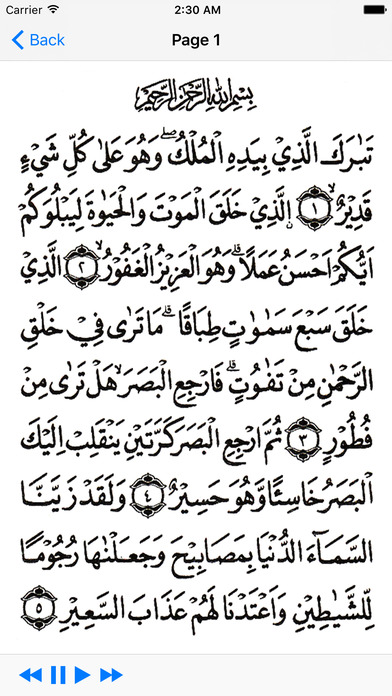 Carrier 2:30 AM
Back Page 1
بِسْمِ اللهِ الرَّحْمٰنِ الرَّحِيْمِ
تَبٰرَكَ الَّذِيْ بِيَدِهِ الْمُلْكُ ۖ وَهُوَ عَلٰى كُلِّ شَيْءٍ
قَدِيْرٌ ۙ ﴿١﴾ الَّذِيْ خَلَقَ الْمَوْتَ وَالْحَيٰوةَ لِيَبْلُوَكُمْ
اَيُّكُمْ اَحْسَنُ عَمَلًا ۗ وَهُوَ الْعَزِيْزُ الْغَفُوْرُ ۙ ﴿٢﴾ الَّذِيْ
خَلَقَ سَبْعَ سَمٰوٰتٍ طِبَاقًا ۗ مَا تَرٰى فِيْ خَلْقِ
الرَّحْمٰنِ مِنْ تَفٰوُتٍ ۗ فَارْجِعِ الْبَصَرَ ۙ هَلْ تَرٰى مِنْ
فُطُوْرٍ ﴿٣﴾ ثُمَّ ارْجِعِ الْبَصَرَ كَرَّتَيْنِ يَنْقَلِبْ اِلَيْكَ
الْبَصَرُ خَاسِئًا وَّهُوَ حَسِيْرٌ ﴿٤﴾ وَلَقَدْ زَيَّنَّا
السَّمَآءَ الدُّنْيَا بِمَصَابِيْحَ وَجَعَلْنٰهَا رُجُوْمًا
لِّلشَّيٰطِيْنِ وَاَعْتَدْنَا لَهُمْ عَذَابَ السَّعِيْرِ ﴿٥﴾